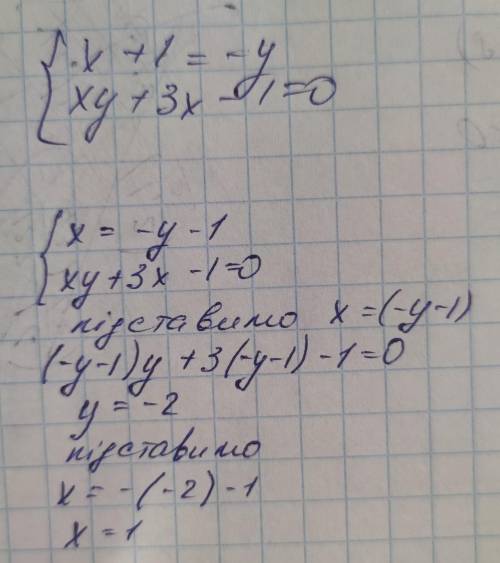 x + 1 = -y
xy + 3x - 1 = 0
x = -y - 1
xy + 3x - 1 = 0
підставимо x = (-y-1)
(-y-1)y + 3(-y-1) - 1 = 0
y = -2
підставимо
x = -(-2) - 1
x = 1